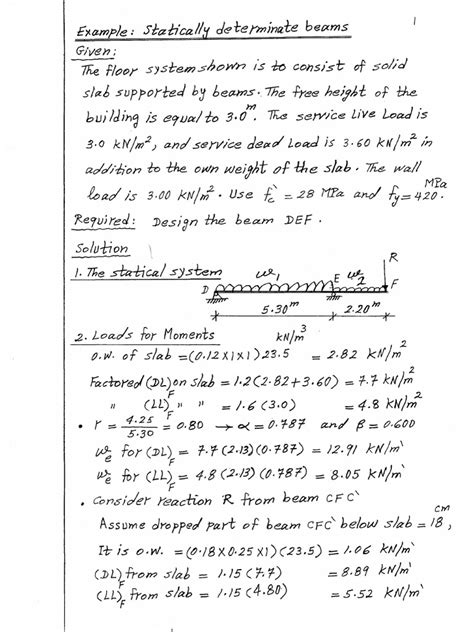 1
Example: Statically determinate beams
Given:
The floor system shown is to consist of solid
slab supported by beams. The free height of the
building is equal to 3.0 m. The service Live Load is
3.0 kN/m², and service dead Load is 3.60 kN/m² in
addition to the own weight of the slab. The wall
load is 3.00 kN/m². Use f'c = 28 MPa and fy = 420 MPa.
Required: Design the beam DEF.
Solution
R
1. The statical system
D we1 E we2 F
5.30 m 2.20 m
2. Loads for Moments
o.w. of slab = (0.12x1x1) 23.5 kN/m³ = 2.82 kN/m²
Factored (DL)F on slab = 1.2(2.82+3.60) = 7.7 kN/m²
" (LL)F " " = 1.6(3.0) = 4.8 kN/m²
• r = 4.25/5.30 = 0.80 → α = 0.787 and β = 0.600
we for (DL)F = 7.7(2.13)(0.787) = 12.91 kN/m'
we for (LL)F = 4.8(2.13)(0.787) = 8.05 kN/m'
• Consider reaction R from beam CFC'
Assume dropped part of beam CFC' below slab = 18 cm,
It is o.w. = (0.18x0.25x1)(23.5) = 1.06 kN/m'
(DL)F from slab = 1.15(7.7) = 8.89 kN/m'
(LL)F from slab = 1.15(4.80) = 5.52 kN/m'